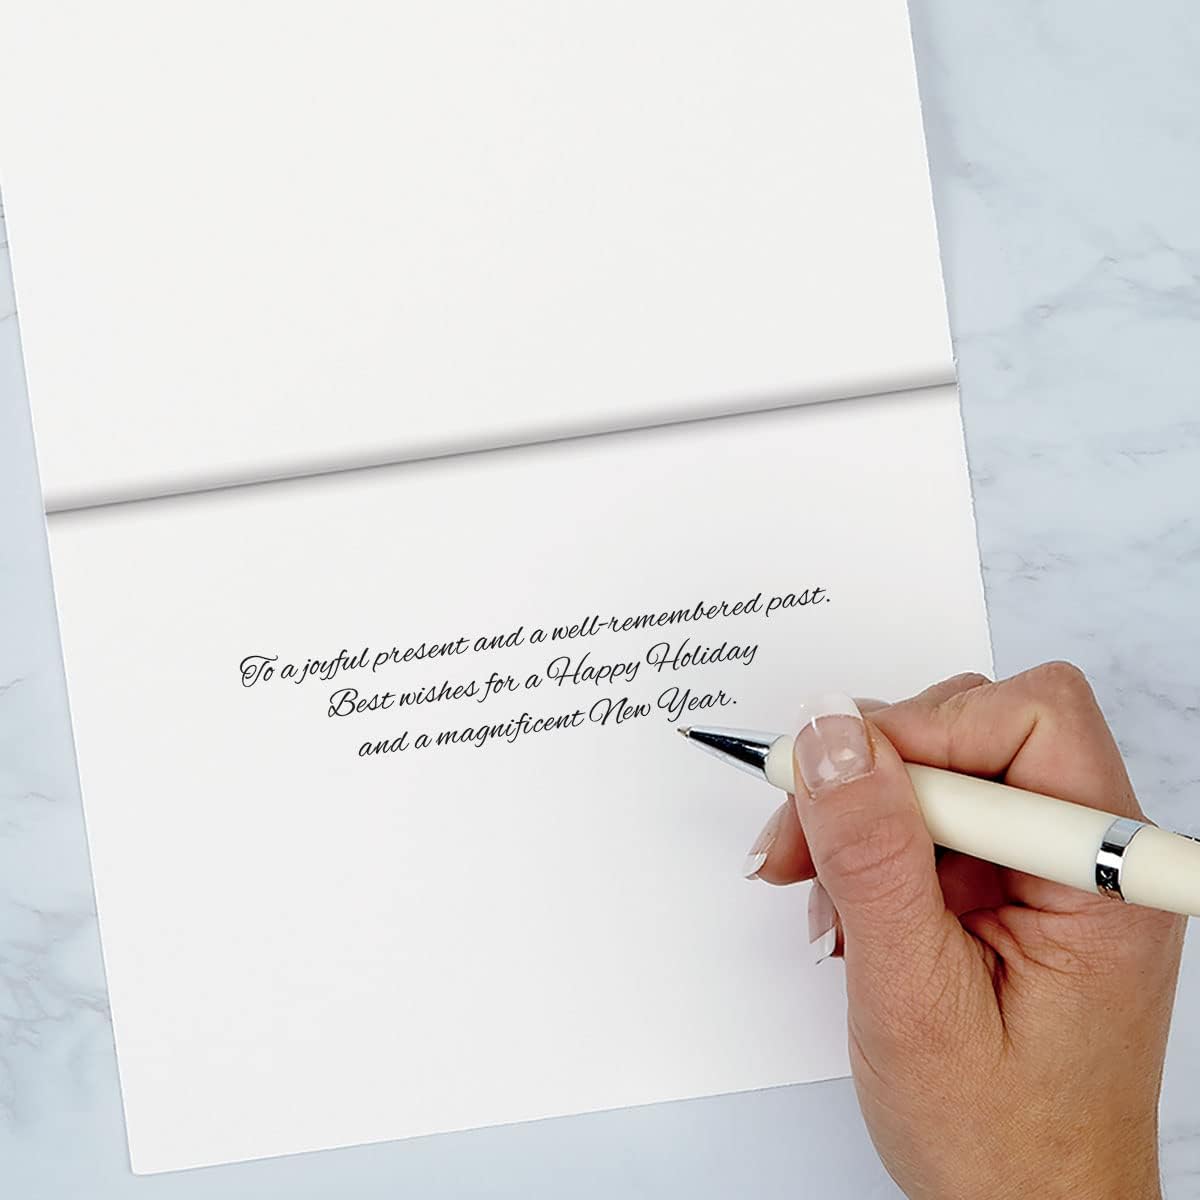 To a joyful present and a well-remembered past.
Best wishes for a Happy Holiday
and a magnificent New Year.